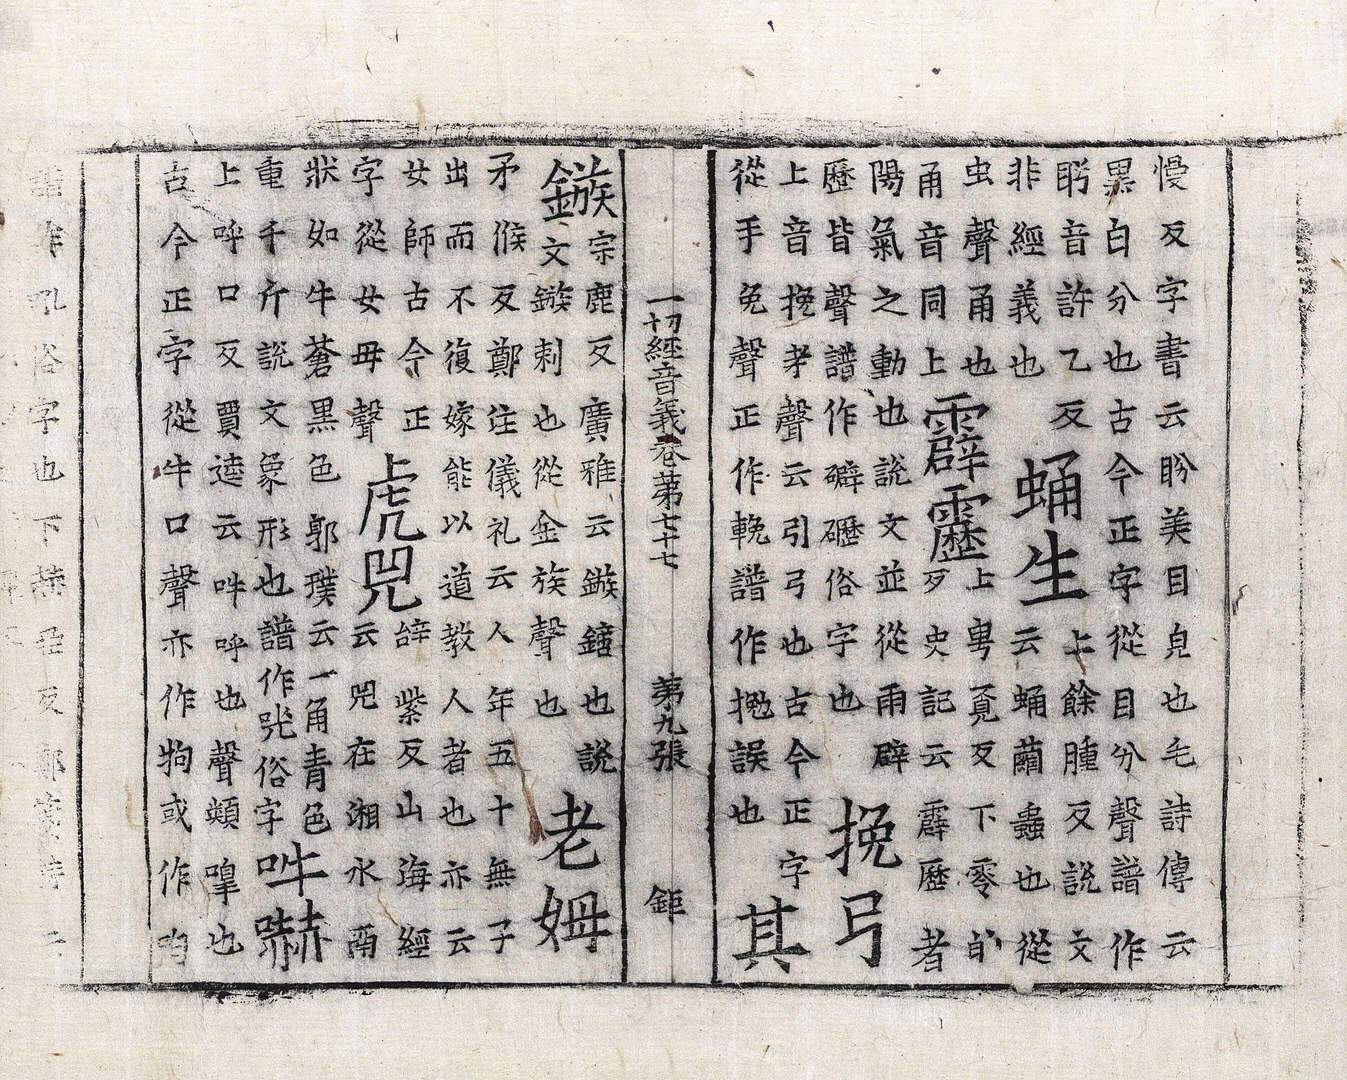 慢反字書云盼美目皃也毛詩傳云
黒白分也古今正字從目分聲譜作
盻音許乙反蛹生上餘腫反説文
非經義也云蛹繭蟲也從
虫聲甬也上㽕覓反下零的
甬音同上霹靂歹史記云霹歷者
陽氣之動也説文並從雨辟
歷皆聲譜作礔礰俗字也挽弓
上音挽矛聲云引弓也古今正字
從手免聲正作輓譜作㧥誤也其
一切經音義卷苐七十七 苐九張 鉅
鏃宗鹿反廣雅云鏃鏑也説
文鏃刺也從金族聲也老姆
矛候反鄭注儀礼云人年五十無子
出而不復嫁能以道教人者也亦云
女師古今正辝紫反山海經
字從女毋聲虎兕云兕在湘水南
狀如牛蒼黒色郭璞云一角青色
重千斤説文象形也譜作㒸俗字吽㰤
上呼口反賈逵云吽呼也聲類嘷也
古今正字從牛口聲亦作㸸或作呴